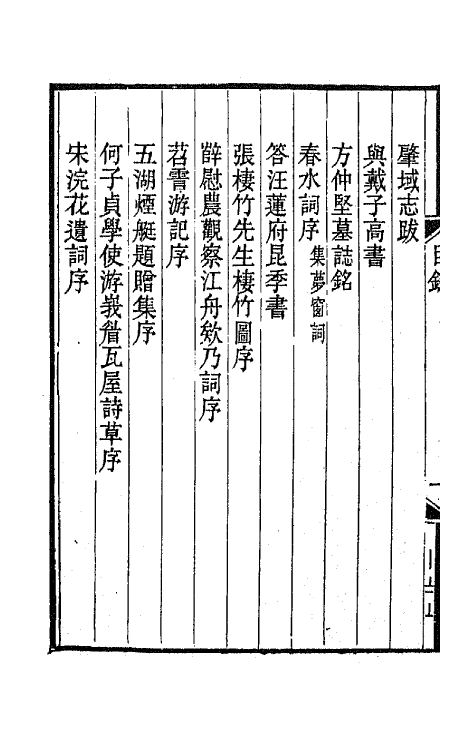 肇域志跋
與戴子高書
方仲堅墓誌銘
春水詞序集夢窗詞
答汪蓮府昆季書
張棲竹先生棲竹圖序
薛慰農觀察江舟欸乃詞序
苕霅游記序
五湖煙艇題贈集序
何子貞學使游峩眉瓦屋詩草序
宋浣花遺詞序
目錄